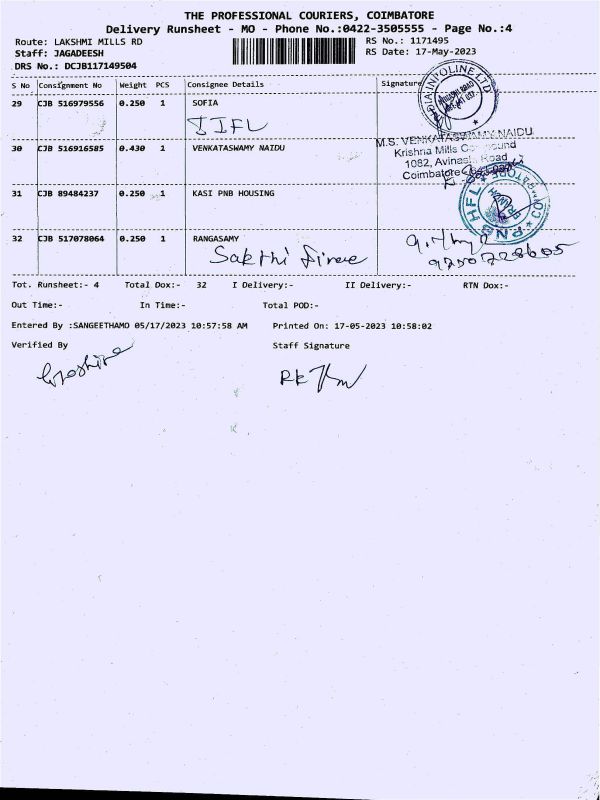 THE PROFESSIONAL COURIERS, COIMBATORE
Delivery Runsheet - MO - Phone No.:0422-3505555 - Page No.:4
Route: LAKSHMI MILLS RD
RS No.: 1171495
Staff: JAGADEESH
RS Date: 17-May-2023
DRS No.: DCJB117149504
S No Consignment No Weight PCS Consignee Details Signature
29 CJB 516979556 0.250 1 SOFIA
IIFL
INDIA INFOLINE LTD
30 CJB 516916585 0.430 1 VENKATASWAMY NAIDU
M.S. VENKATASWAMY NAIDU
Krishna Mills Compound
1082, Avinashi Road
Coimbatore
31 CJB 89484237 0.250 1 KASI PNB HOUSING
PNB HFL
BRANCH
32 CJB 517078064 0.250 1 RANGASAMY
Sakthi
Tot. Runsheet:- 4 Total Dox:- 32 I Delivery:- II Delivery:- RTN Dox:-
Out Time:- In Time:- Total POD:-
Entered By :SANGEETHAMO 05/17/2023 10:57:58 AM Printed On: 17-05-2023 10:58:02
Verified By Staff Signature